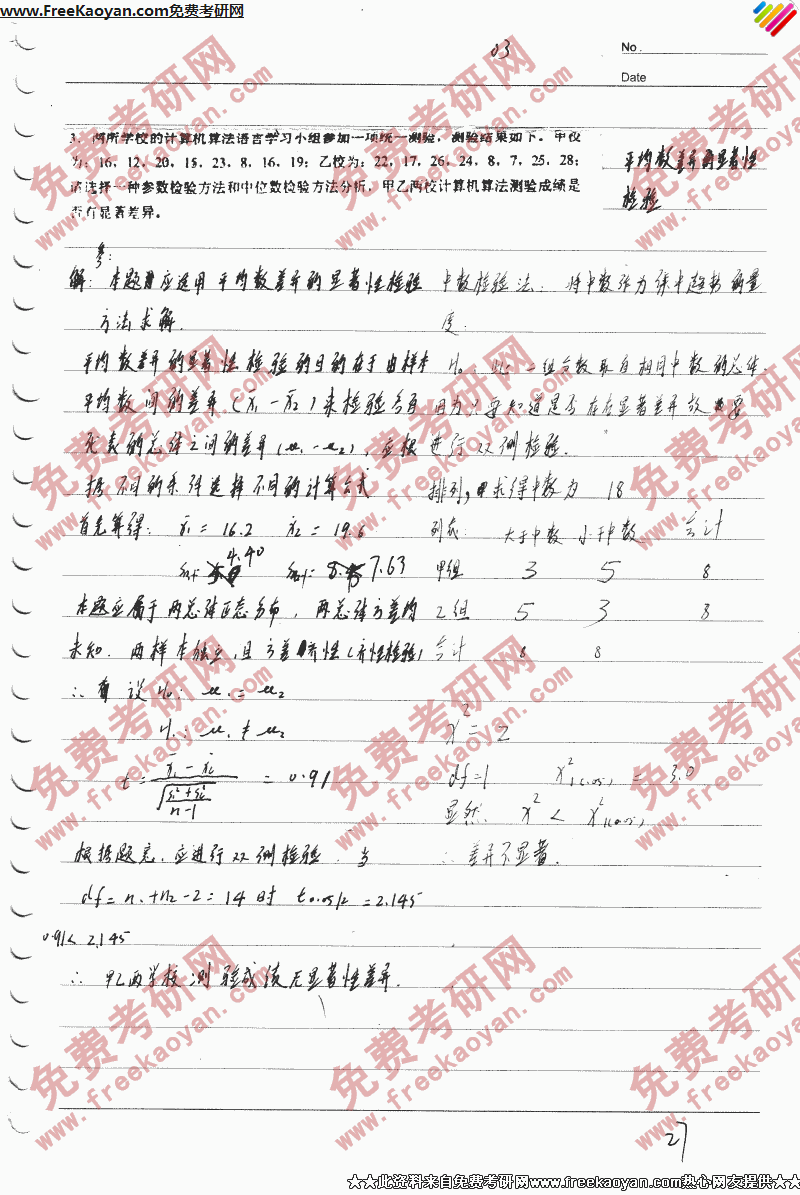 www.FreeKaoyan.com免费考研网
03
No.
Date
3. 两所学校的计算机算法语言学习小组参加一项统一测验，测验结果如下。甲校
为：16，12，20，15，23，8，16，19；乙校为：22，17，26，24，8，7，25，28；
请选择一种参数检验方法和中位数检验方法分析，甲乙两校计算机算法测验成绩是
否有显著差异。
平均数差异的显著性
检验
参：
解：本题应选用平均数差异的显著性检验
方法求解.
平均数差异的显著性检验的目的在于由样本
平均数间的差异(x̄₁-x̄₂)来检验各自
代表的总体之间的差异(μ₁-μ₂)，应根
据不同的条件选择不同的计算公式
首先算得： x̄₁=16.2 x̄₂=19.6
4.40 7.63
本题应属于两总体正态分布，两总体方差均
未知. 两样本独立，且方差齐性(齐性检验)
∴ 设 H₀: μ₁=μ₂
H₁: μ₁≠μ₂
t= (x̄₁-x̄₂)/√((s₁²+s₂²)/(n-1)) =0.91
根据题意，应进行双侧检验. 当
df=n₁+n₂-2=14时 t0.05/2=2.145
0.91<2.145
∴ 甲乙两学校测验成绩无显著性差异.
中数检验法. 将中数作为集中趋势的量
度:
H₀: 此二组分数取自相同中数的总体.
因为只要知道是否存在显著差异故要
进行双侧检验.
排列，求得中数为 18
列表: 大于中数 小于中数 合计
甲组 3 5 8
乙组 5 3 8
合计 8 8
x²=2
df=1 x²₁(0.05)=3.0
显然. x²<x²₁(0.05)
∴ 差异不显著.
27
★★此资料来自免费考研网www.freekaoyan.com热心网友提供★★
免费考研网
www.freekaoyan.com